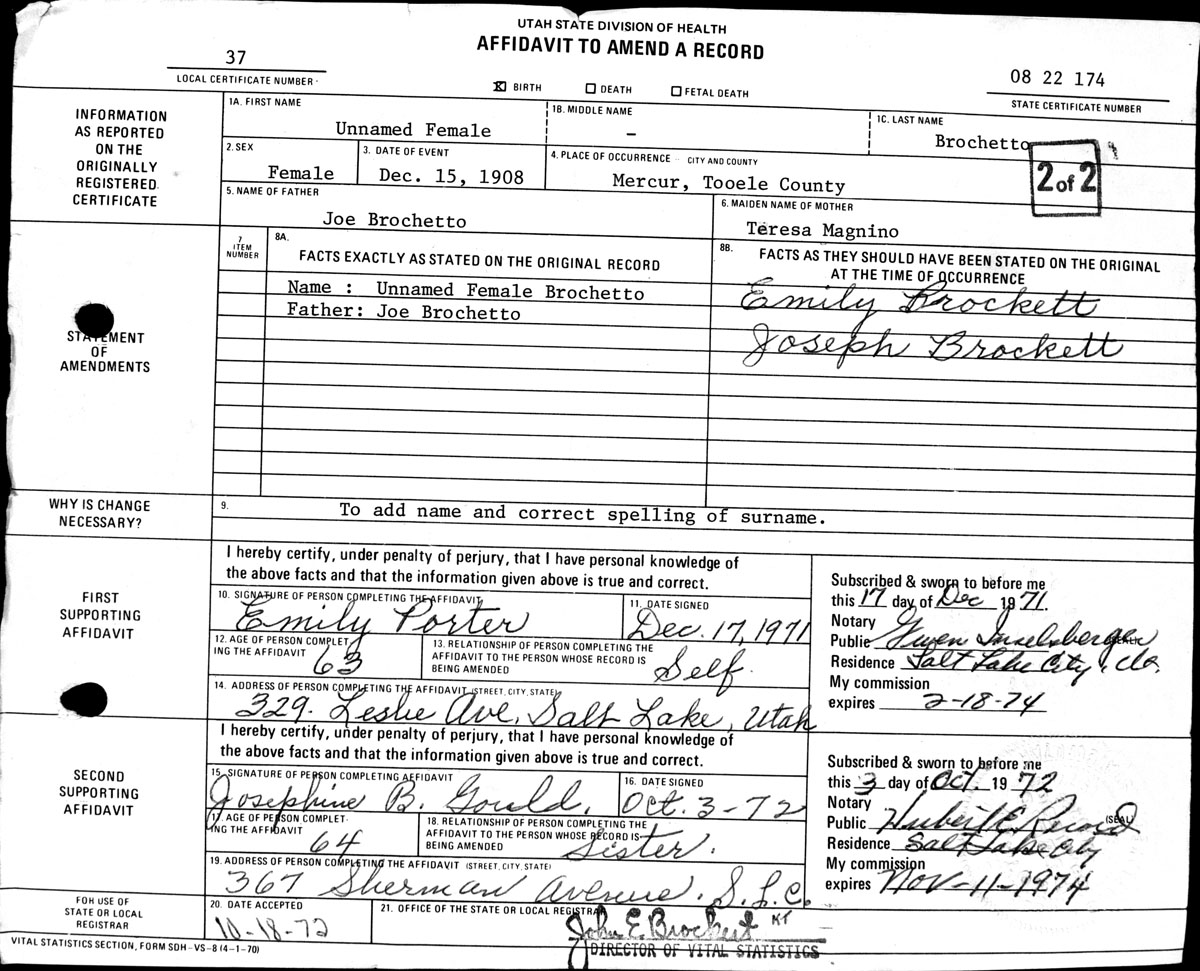 UTAH STATE DIVISION OF HEALTH
AFFIDAVIT TO AMEND A RECORD
37
LOCAL CERTIFICATE NUMBER
☒ BIRTH ☐ DEATH ☐ FETAL DEATH
08 22 174
STATE CERTIFICATE NUMBER
INFORMATION
AS REPORTED
ON THE
ORIGINALLY
REGISTERED
CERTIFICATE
1A. FIRST NAME
Unnamed Female
1B. MIDDLE NAME
–
1C. LAST NAME
Brochetto
2. SEX
Female
3. DATE OF EVENT
Dec. 15, 1908
4. PLACE OF OCCURRENCE CITY AND COUNTY
Mercur, Tooele County
2 of 2
5. NAME OF FATHER
Joe Brochetto
6. MAIDEN NAME OF MOTHER
Teresa Magnino
STATEMENT
OF
AMENDMENTS
7
ITEM
NUMBER
8A.
FACTS EXACTLY AS STATED ON THE ORIGINAL RECORD
8B.
FACTS AS THEY SHOULD HAVE BEEN STATED ON THE ORIGINAL
AT THE TIME OF OCCURRENCE
Name : Unnamed Female Brochetto
Emily Brockett
Father: Joe Brochetto
Joseph Brockett
WHY IS CHANGE
NECESSARY?
9.
To add name and correct spelling of surname.
FIRST
SUPPORTING
AFFIDAVIT
I hereby certify, under penalty of perjury, that I have personal knowledge of
the above facts and that the information given above is true and correct.
10. SIGNATURE OF PERSON COMPLETING THE AFFIDAVIT
Emily Porter
11. DATE SIGNED
Dec. 17, 1971
12. AGE OF PERSON COMPLET-
ING THE AFFIDAVIT
63
13. RELATIONSHIP OF PERSON COMPLETING THE
AFFIDAVIT TO THE PERSON WHOSE RECORD IS
BEING AMENDED
Self.
14. ADDRESS OF PERSON COMPLETING THE AFFIDAVIT (STREET, CITY, STATE)
329. Leslie Ave, Salt Lake, Utah
Subscribed & sworn to before me
this 17 day of Dec 1971.
Notary
Public Gwen Inselsberger
Residence Salt Lake City,
My commission
expires 2-18-74
SECOND
SUPPORTING
AFFIDAVIT
I hereby certify, under penalty of perjury, that I have personal knowledge of
the above facts and that the information given above is true and correct.
15. SIGNATURE OF PERSON COMPLETING AFFIDAVIT
Josephine B. Gould.
16. DATE SIGNED
Oct. 3-72
17. AGE OF PERSON COMPLET-
ING THE AFFIDAVIT
64
18. RELATIONSHIP OF PERSON COMPLETING THE
AFFIDAVIT TO THE PERSON WHOSE RECORD IS
BEING AMENDED
Sister.
19. ADDRESS OF PERSON COMPLETING THE AFFIDAVIT (STREET, CITY, STATE)
367 Sherman Avenue. S.L.C.
Subscribed & sworn to before me
this 3 day of Oct. 1972
Notary
Public (SEAL)
Residence Salt Lake City
My commission
expires Nov-11-1974
FOR USE OF
STATE OR LOCAL
REGISTRAR
20. DATE ACCEPTED
10-18-72
21. OFFICE OF THE STATE OR LOCAL REGISTRAR
John E. Brockert KT
DIRECTOR OF VITAL STATISTICS
VITAL STATISTICS SECTION, FORM SDH-VS-8 (4-1-70)